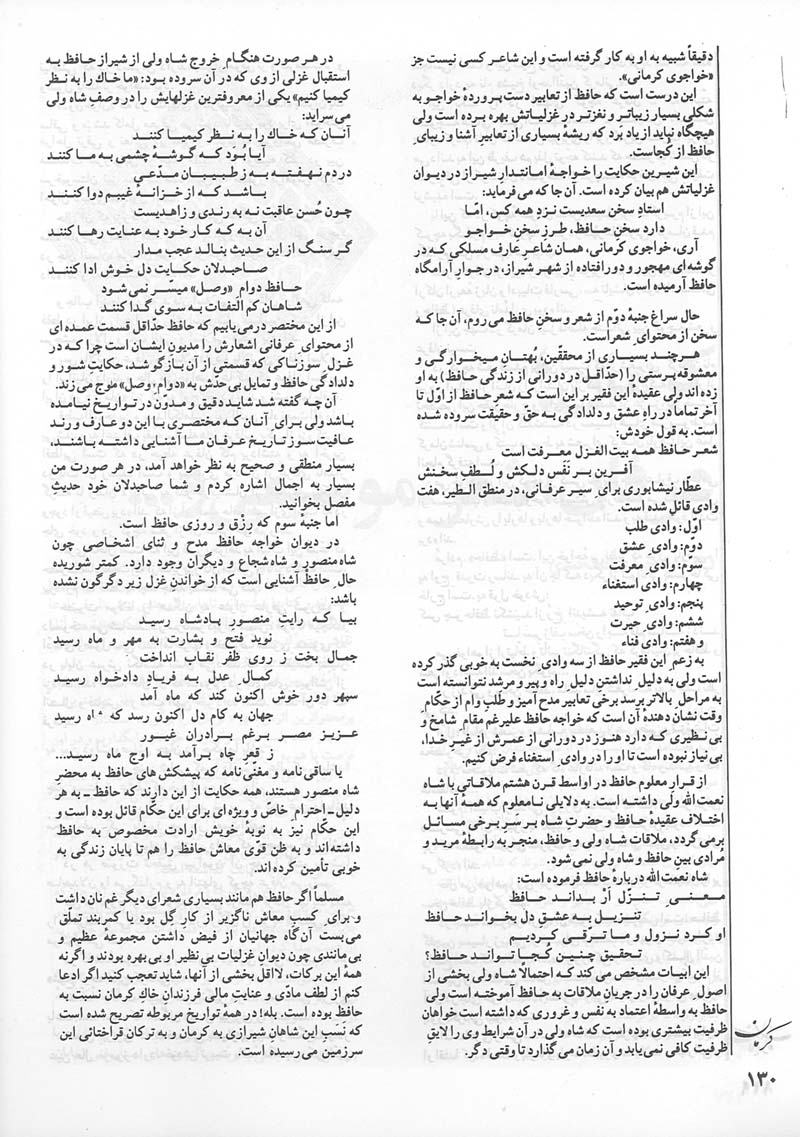 دقیقاً شبیه به او به کار گرفته است و این شاعر کسی نیست جز
«خواجوی کرمانی».
این درست است که حافظ از تعابیر دست پروردهٔ خواجو به
شکلی بسیار زیباتر و نغزتر در غزلیاتش بهره برده است ولی
هیچگاه نباید از یاد بُرد که ریشهٔ بسیاری از تعابیرِ آشنا و زیبایِ
حافظ از کُجاست.
این شیرین حکایت را خواجهٔ امانتدارِ شیراز در دیوان
غزلیاتش هم بیان کرده است. آن جا که می فرماید:
استادِ سخن سعدیست نزدِ همه کس، امّا
دارد سخنِ حافظ، طرزِ سخنِ خواجو
آری، خواجوی کرمانی، همان شاعرِ عارف مسلکی که در
گوشه ای مهجور و دورافتاده از شهر شیراز، در جوارِ آرامگاه
حافظ آرمیده است.
حال سراغِ جنبهٔ دوّم از شعر و سخنِ حافظ می روم، آن جا که
سخن از محتوایِ شعر است.
هرچند بسیاری از محققّین، بُهتانِ میخوارگی و
معشوقه پرستی را (حدّاقل در دورانی از زندگی حافظ) به او
زده اند ولی عقیدهٔ این فقیر بر این است که شعرِ حافظ از اوّل تا
آخر تماماً در راهِ عشق و دلدادگی به حقّ و حقیقت سروده شده
است. به قول خودش:
شعر حافظ همه بیت الغزلِ معرفت است
آفرین بر نَفَسِ دلکش و لُطفِ سخنش
عطّار نیشابوری برایِ سیر عرفانی، در منطق الطیر، هفت
وادی قائل شده است.
اوّل: وادی طلب
دوّم: وادیِ عشق
سوّم: وادیِ معرفت
چهارم: وادی استغناء
پنجم: وادیِ توحید
ششم: وادیِ حیرت
و هفتم: وادی فناء
به زعم این فقیر حافظ از سه وادیِ نخست به خوبی گذر کرده
است ولی به دلیل نداشتن دلیل راه و پیر و مرشد نتوانسته است
به مراحل بالاتر برسد برخی تعابیر مدح آمیز و طلب وام از حکّام
وقت نشان دهندهٔ آن است که خواجه حافظ علیرغم مقام شامخ و
بی نظیری که دارد هنوز در دورانی از عمرش از غیرِ خدا،
بی نیاز نبوده است تا او را در وادیِ استغناء فرض کنیم.
از قرارِ معلوم حافظ در اواسط قرن هشتم ملاقاتی با شاه
نعمت الله ولی داشته است. به دلایلی نامعلوم که همهٔ آنها به
اختلاف عقیدهٔ حافظ و حضرتِ شاه بر سر برخی مسائل
برمی گردد، ملاقات شاه ولی و حافظ، منجر به رابطهٔ مرید و
مُرادی بینِ حافظ و شاه ولی نمی شود.
شاه نعمت الله دربارهٔ حافظ فرموده است:
معنیِ تنزّل اَرْ بداند حافظ
تنزیل به عشقِ دل بخواند حافظ
او کرد نزول و ما ترّقی کردیم
تحقیق چنین کُجا تواند حافظ؟
این ابیات مشخص می کند که احتمالاً شاه ولی بخشی از
اصول عرفان را در جریان ملاقات به حافظ آموخته است ولی
حافظ به واسطهٔ اعتماد به نفس و غروری که داشته است خواهان
ظرفیت بیشتری بوده است که شاه ولی در آن شرایط وی را لایقِ
ظرفیت کافی نمی یابد و آن زمان می گذارد تا وقتی دگر.
در هر صورت هنگام خروج شاه ولی از شیراز حافظ به
استقبال غزلی از وی که در آن سروده بود: «ما خاك را به نظر
کیمیا کنیم» یکی از معروفترین غزلهایش را در وصفِ شاه ولی
می سراید:
آنان که خاك را به نظر کیمیا کنند
آیا بُوَد که گوشهٔ چشمی به ما کنند
دردم نهفته به ز طبیبانِ مدّعی
باشد که از خزانهٔ غیبم دوا کنند
چون حُسن عاقبت نه به رندی و زاهدیست
آن به که کار خود به عنایت رها کنند
گر سنگ از این حدیث بنالد عجب مدار
صاحبدلان حکایت دل خوش ادا کنند
حافظ دوامِ «وصل» میسّر نمی شود
شاهان کم التفات به سوی گدا کنند
از این مختصر درمی یابیم که حافظ حدّاقل قسمت عمده ای
از محتوای عرفانی اشعارش را مدیونِ ایشان است چرا که در
غزل سوزناکی که قسمتی از آن بازگو شد، حکایتِ شور و
دلدادگی حافظ و تمایل بی حدّش به «دوام وصل» موج می زند.
آن چه گفته شد شاید دقیق و مدوّن در تواریخ نیامده
باشد ولی برای آنان که مختصری با این دو عارف و رند
عافیت سوز تاریخ عرفان ما آشنایی داشته باشند،
بسیار منطقی و صحیح به نظر خواهد آمد، در هر صورت من
بسیار به اجمال اشاره کردم و شما صاحبدلان خود حدیثِ
مفصل بخوانید.
اما جنبهٔ سوم که رِزْق و روزی حافظ است.
در دیوان خواجه حافظ مدح و ثنای اشخاصی چون
شاه منصور و شاه شجاع و دیگران وجود دارد. کمتر شوریده
حالِ حافظْ آشنایی است که از خواندنِ غزل زیر دگرگون نشده
باشد:
بیا که رایتِ منصورِ پادشاه رسید
نوید فتح و بشارت به مهر و ماه رسید
جمال بخت ز روی ظفر نقاب انداخت
کمال عدل به فریادِ دادخواه رسید
سپهر دور خوش اکنون کند که ماه آمد
جهان به کام دل اکنون رسد که شاه رسید
عزیز مصر برغم برادران غیور
ز قعرِ چاه برآمد به اوج ماه رسید...
یا ساقی نامه و مغنّی نامه که پیشکش های حافظ به محضرِ
شاه منصور هستند، همه حکایت از این دارند که حافظ ـ به هر
دلیل ـ احترامِ خاصّ و ویژه ای برای این حکّام قائل بوده است و
این حکّام نیز به نوبهٔ خویش ارادت مخصوص به حافظ
داشته اند و به ظن قوّی معاش حافظ را هم تا پایان زندگی به
خوبی تأمین کرده اند.
مسلماً اگر حافظ هم مانند بسیاری شعرای دیگر غم نان داشت
و برایِ کسبِ معاش ناگزیر از کارِ گِل بود یا کمربند تملّق
می بست آن گاه جهانیان از فیض داشتن مجموعهٔ عظیم و
بی مانندی چون دیوانِ غزلیات بی نظیر او بی بهره بودند و اگر نه
همهٔ این برکات، لااقل بخشی از آنها، شاید تعجب کنید اگر ادعا
کنم از لطف مادّی و عنایتِ مالی فرزندانِ خاكِ کرمان نسبت به
حافظ بوده است. بله! در همهٔ تواریخ مربوطه تصریح شده است
که نَسَبِ این شاهانِ شیرازی به کرمان و به ترکان قراختائی این
سرزمین می رسیده است.
کرمان
۱۳۰